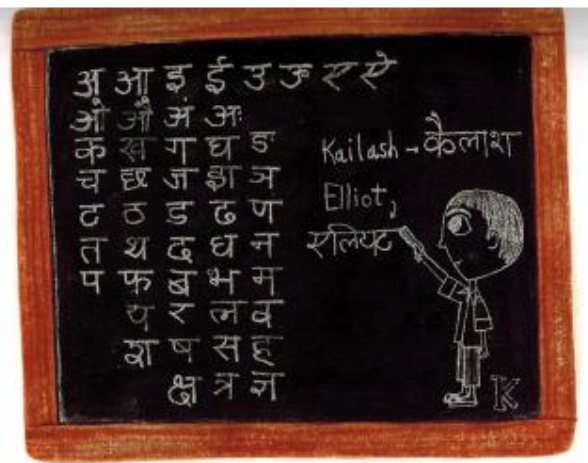 अ आ इ ई उ ऊ ए ऐ
ओ औ अं अः
क ख ग घ ङ
च छ ज झ ञ
ट ठ ड ढ ण
त थ द ध न
प फ ब भ म
य र ल व
श ष स ह
क्ष त्र ज्ञ
Kailash - कैलाश
Elliot,
एलियट
K